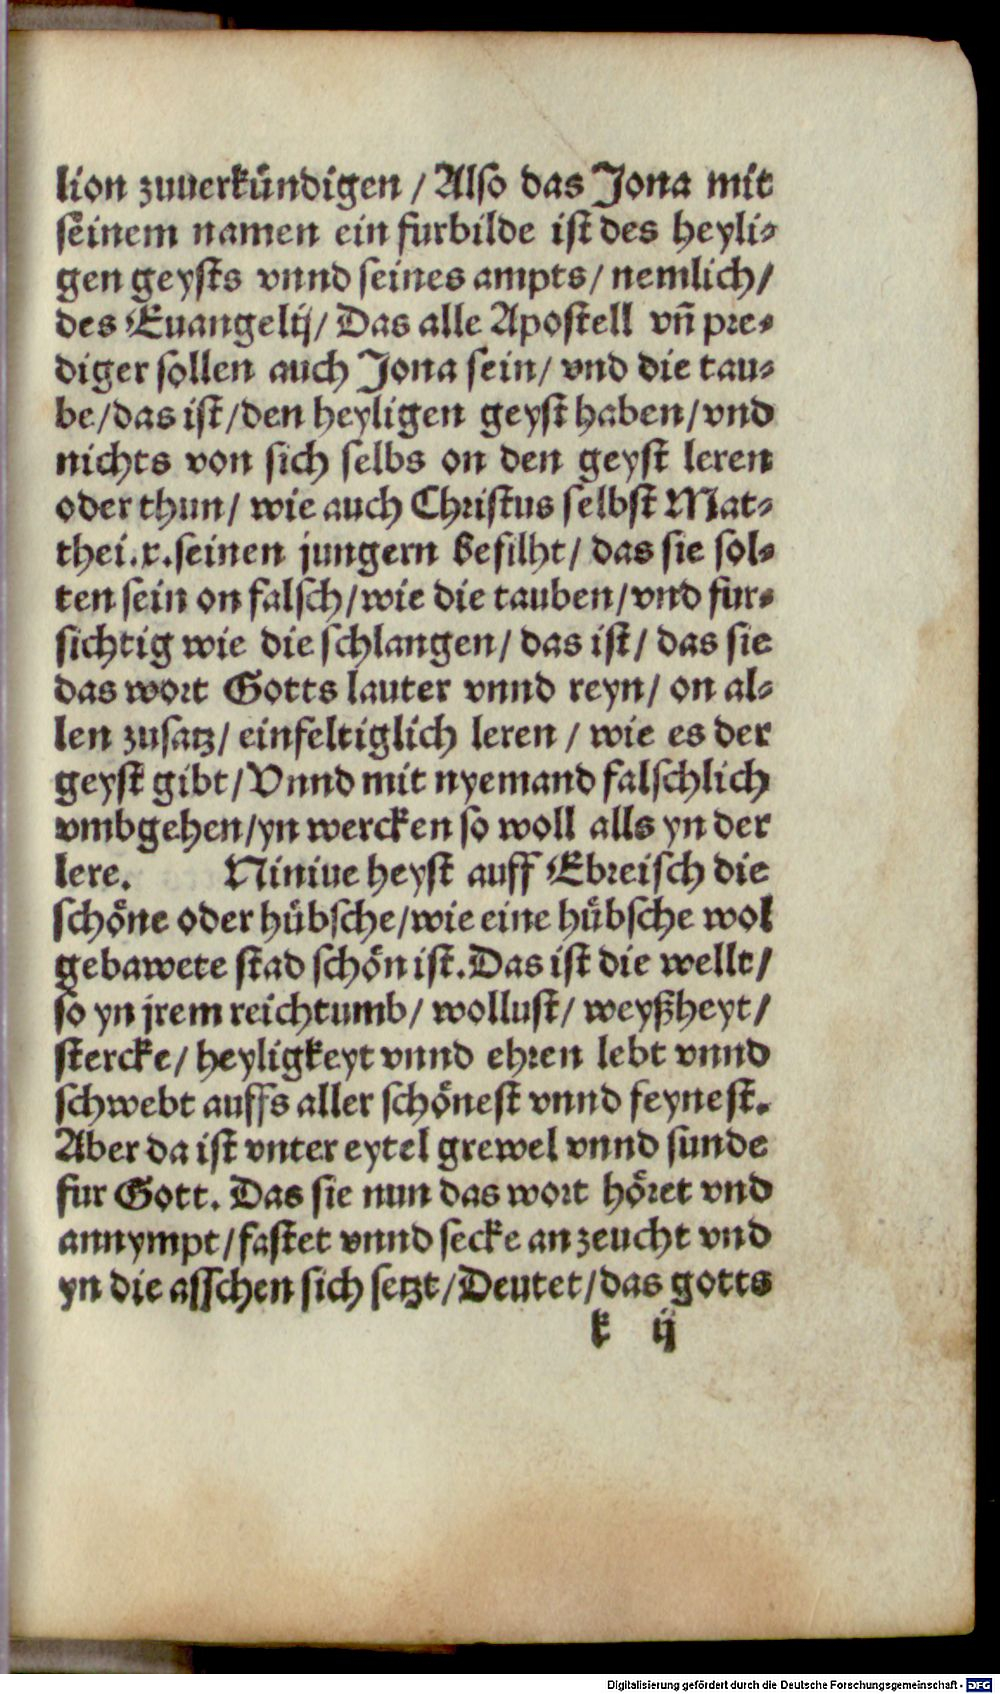 lion zuuerkündigen / Also das Jona mit
seinem namen ein furbilde ist des heyli⸗
gen geysts vnnd seines ampts / nemlich /
des Euangelij / Das alle Apostell vñ pre⸗
diger sollen auch Jona sein / vnd die tau⸗
be / das ist / den heyligen geyst haben / vnd
nichts von sich selbs on den geyst leren
oder thun / wie auch Christus selbst Mat⸗
thei. x. seinen jungern befilht / das sie sol⸗
ten sein on falsch / wie die tauben / vnd fur⸗
sichtig wie die schlangen / das ist / das sie
das wort Gotts lauter vnnd reyn / on al⸗
len zusatz / einfeltiglich leren / wie es der
geyst gibt / Vnnd mit nyemand falschlich
vmbgehen / yn wercken so woll alls yn der
lere. Niniue heyst auff Ebreisch die
schöne oder hübsche / wie eine hübsche wol
gebawete stad schön ist. Das ist die wellt /
so yn jrem reichtumb / wollust / weyßheyt /
stercke / heyligkeyt vnnd ehren lebt vnnd
schwebt auffs aller schönest vnnd feynest.
Aber da ist vnter eytel grewel vnnd sunde
fur Gott. Das sie nun das wort höret vnd
annympt / fastet vnnd secke an zeucht vnd
yn die asschen sich setzt / Deutet / das gotts
k ij
Digitalisierung gefördert durch die Deutsche Forschungsgemeinschaft - DFG